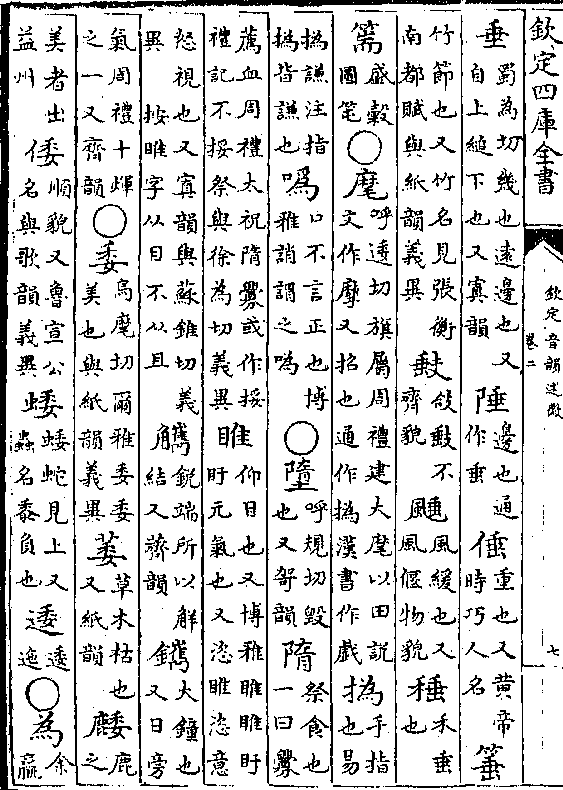 欽定四庫全書
欽定音韻述微 卷二 七
垂蜀為切幾也遠邊也又自上縋下也又寘韻陲邊也通作垂倕重也又黃帝時巧人名箠
竹節也又竹名見張衡南都賦與紙韻義異敧不齊貌風緩也又風偃物貌䅜禾垂也
篅盛穀圓笔○麾呼逶切旗屬周禮建大麾以田説文作摩又招也通作撝漢書作戯撝手指也易
撝謙注指撝皆謙也㗾口不言正也博雅誚謂之㗾○墮呼規切毀也又哿韻隋祭食也一曰釁
薦血周禮大祝隋釁或作挼禮記不挼祭與徐為切義異睢仰目也又博雅睢睢盱盱元氣也又恣睢恣意
怒視也又寘韻與蘇錐切義異 按睢字从目不从且觿鋭端所以解結又齊韻鑴大鐘也又日旁
氣周禮十煇之一又齊韻○委烏麾切爾雅委委美也與紙韻義異萎草木枯也又紙韻䴧鹿之
美者出益州倭順貌又魯宣公名與歌韻義異蜲蜲蛇見上又蟲名黍負也逶逶迤○為余嬴